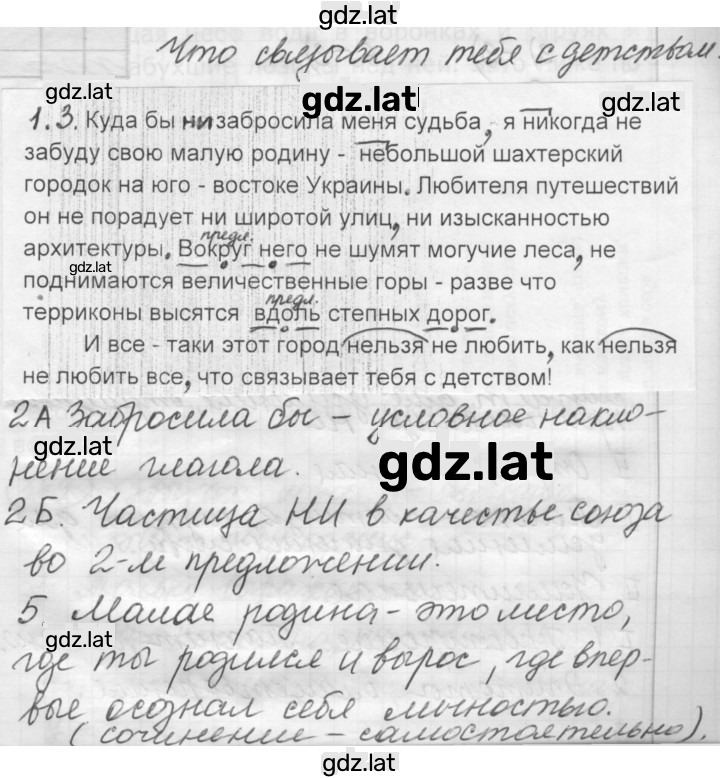 gdz.lat
Что связывает тебя с детством.
gdz.lat
gdz.lat
1.3. Куда бы ни забросила меня судьба, я никогда не
забуду свою малую родину - небольшой шахтерский
городок на юго - востоке Украины. Любителя путешествий
он не порадует ни широтой улиц, ни изысканностью
предл.
архитектуры. Вокруг него не шумят могучие леса, не
gdz.lat
поднимаются величественные горы - разве что
предл.
терриконы высятся вдоль степных дорог.
И все - таки этот город нельзя не любить, как нельзя
не любить все, что связывает тебя с детством!
2А Забросила бы - условное накло-
нение глагола.
gdz.lat
2Б. Частица НИ в качестве союза
во 2-м предложении.
5 Малая родина - это место,
gdz.lat
где ты родился и вырос, где впер-
вые осознал себя личностью.
(сочинение - самостоятельно).
gdz.lat